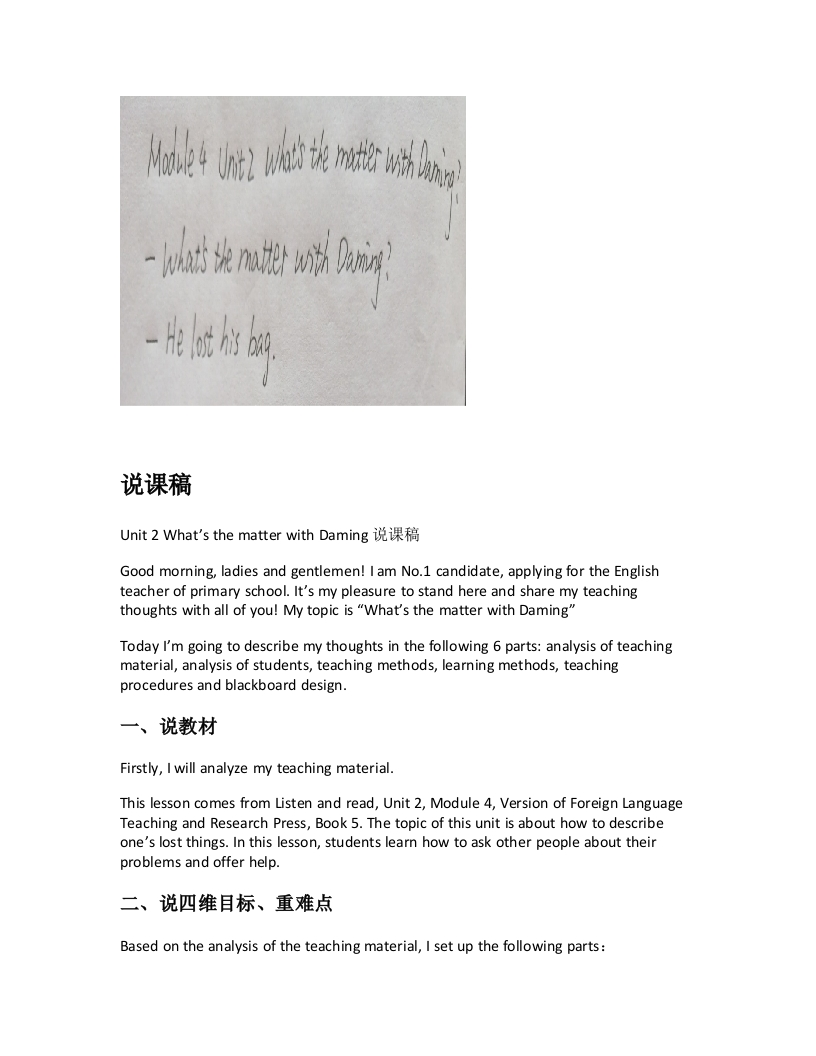 Module 4 Unit 2 What's the matter with Daming?
- What's the matter with Daming?
- He lost his bag.
说课稿
Unit 2 What’s the matter with Daming 说课稿
Good morning, ladies and gentlemen! I am No.1 candidate, applying for the English
teacher of primary school. It’s my pleasure to stand here and share my teaching
thoughts with all of you! My topic is “What’s the matter with Daming”
Today I’m going to describe my thoughts in the following 6 parts: analysis of teaching
material, analysis of students, teaching methods, learning methods, teaching
procedures and blackboard design.
一、说教材
Firstly, I will analyze my teaching material.
This lesson comes from Listen and read, Unit 2, Module 4, Version of Foreign Language
Teaching and Research Press, Book 5. The topic of this unit is about how to describe
one’s lost things. In this lesson, students learn how to ask other people about their
problems and offer help.
二、说四维目标、重难点
Based on the analysis of the teaching material, I set up the following parts：